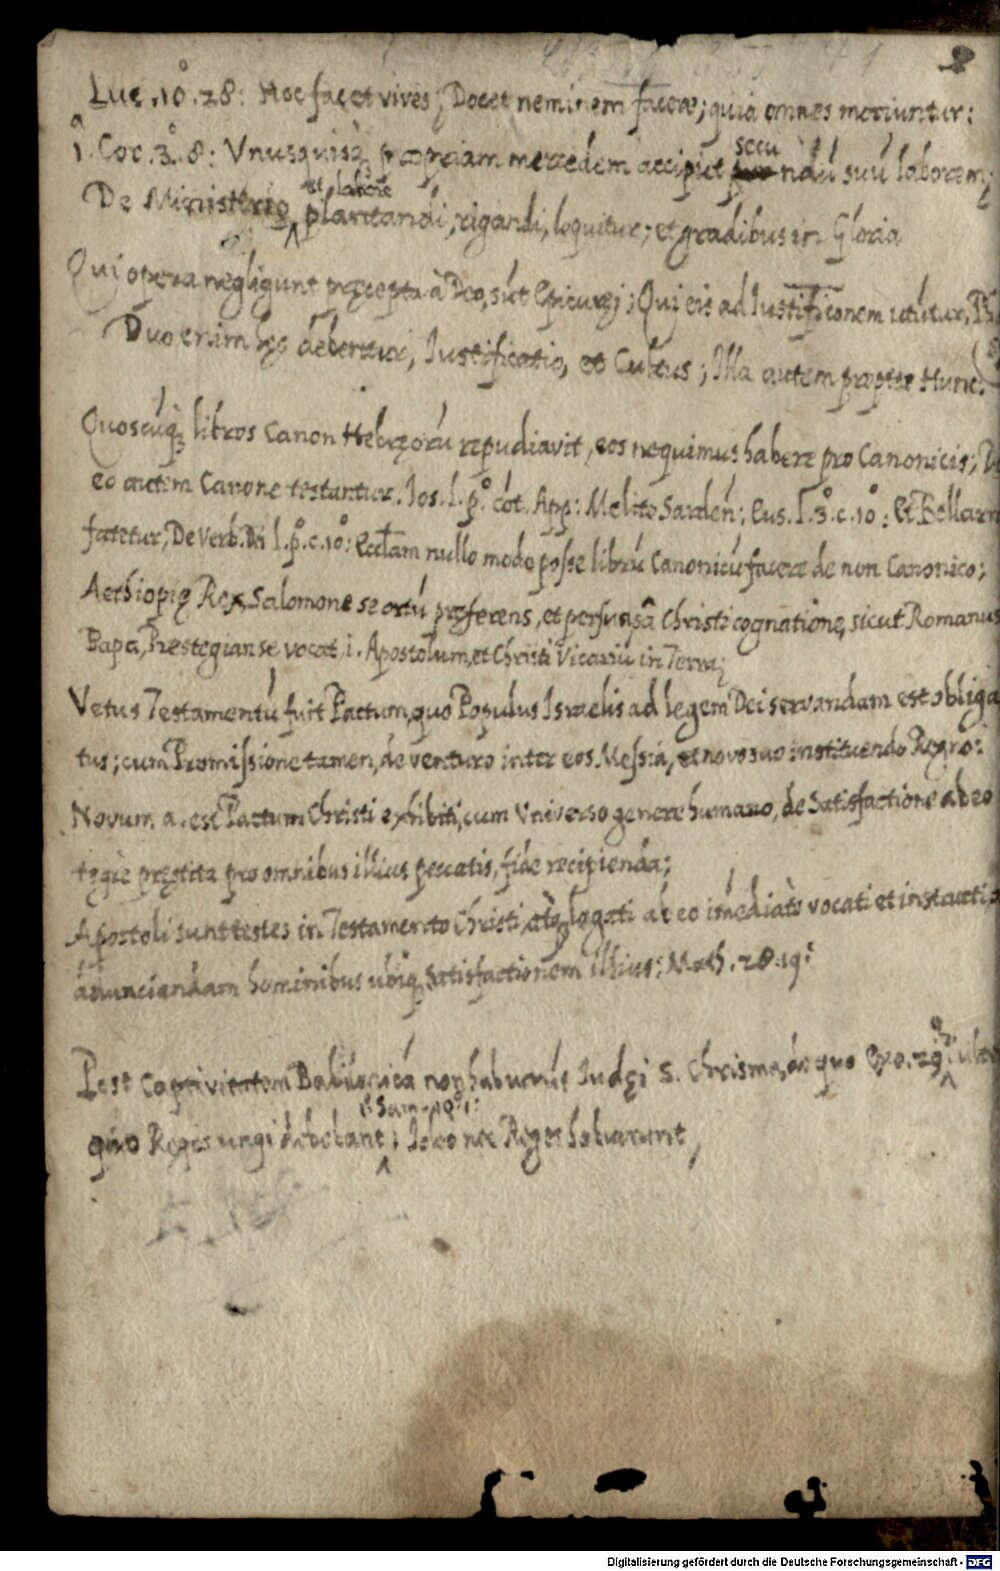 2
Luc. 10°. 28: Hoc fac et vives; Docet neminem facere; quia omnes moriuntur:
1.ª Cor. 3°. 8: Vnusquisq; propriam mercedem accipiet secundū suū laborem;
De Ministerio et labore plantandi, rigandi, loquitur; et gradibus in Gloria
Qui opera negligunt pręcepta à Deo, sūt Epicuręi; Qui eis ad Iustificonem utūtur,
Duo enim hęc debentur, Iustificatio, et Cultus; Illa autem propter Hunc.
Quoscūq; libros Canon Hebręorū repudiavit, eos nequimus habere pro Canonicis; D
eo autem Canone testantur. Ios. l. p.° cōt. App: Melito Sarden; Eus. l. 3.° c. 10°: Et Bellarm
fatetur, De Verb. Dei l. p.° c. 10°: Eccłam nullo modo posse librū Canonicū facere de non Canonico;
Aethiopię Rex, Salomone se ortū pręferens, et Christi cognatione, sicut Romanus
Papa, Prestegian se vocat, i. Apostolum, et Christi Vicariū in Terra;
Vetus Testamentū fuit Pactum, quo Populus Israelis ad legem Dei servandam est obliga
tus; cum Promissione tamen, de venturo inter eos Messia, et novo suo instituendo Regno:
Novum a. est Pactum Christi exhibiti, cum Vniverso genere humano, de Satisfactione ab eo
tegre pręstita pro omnibus illius peccatis, fide recipienda;
Apostoli sunt testes in Testamento Christi, atq; legati ab eo imēdiate vocati et instructi
ānunciandam hominibus ubiq; Satisfactionem illius: Math. 28. 19:
Post Captivitatem Babilonicā non habuerūt Iudęi S. Chrisma, de quo Exo. 29
quo Reges ungi debebant, 1.ª Sam. 10.° 1: Ideo nec Reges habuerunt,
Digitalisierung gefördert durch die Deutsche Forschungsgemeinschaft - DFG